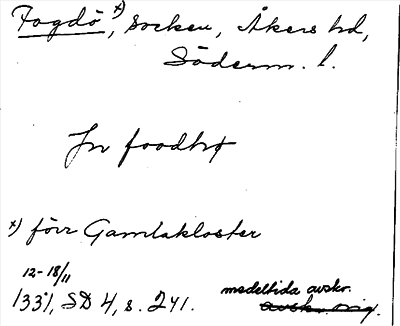 Fogdö x), socken, Åkers hd,
Söderm. l.
Jn foodhø
x) förr Gamlakloster
12-18/11
1331, SD 4, s. 241.
medeltida avskr.
avskr. orig.